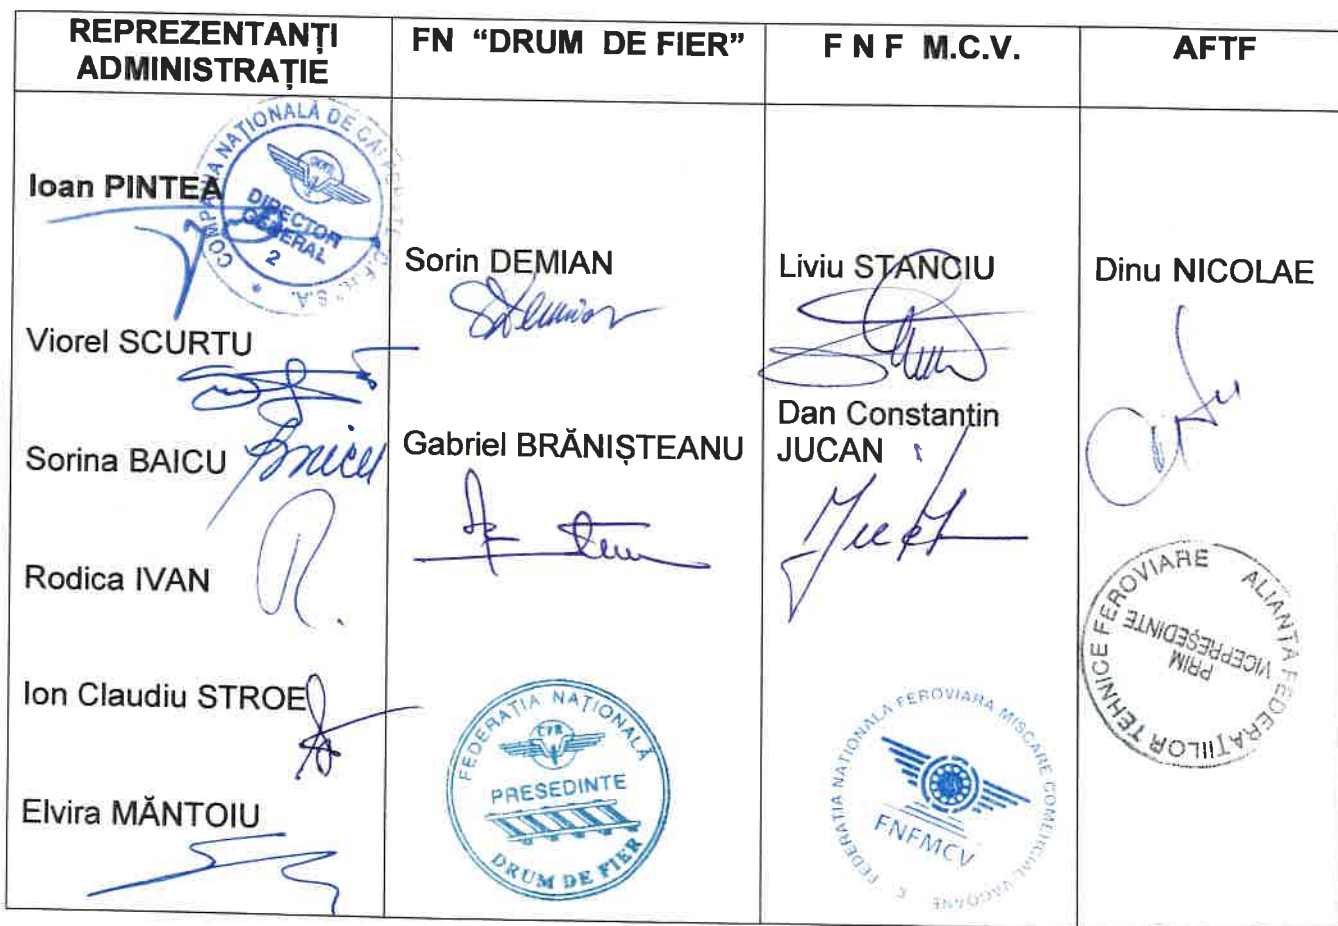 REPREZENTANȚI
ADMINISTRAȚIE
FN "DRUM DE FIER"
F N F M.C.V.
AFTF
Ioan PINTEA
COMPANIA NAȚIONALĂ DE CĂI FERATE "C.F.R." S.A.
DIRECTOR
GENERAL
2
Viorel SCURTU
Sorina BAICU
Baicu
Rodica IVAN
R.
Ion Claudiu STROE
Elvira MĂNTOIU
Sorin DEMIAN
SDemian
Gabriel BRĂNIȘTEANU
FEDERAȚIA NAȚIONALĂ
CFR
PRESEDINTE
DRUM DE FIER
Liviu STANCIU
Dan Constantin
JUCAN
FEDERATIA NATIONALA FEROVIARA MISCARE COMERCIAL VAGOANE
FNFMCV
Dinu NICOLAE
ALIANȚA FEDERAȚIILOR TEHNICE FEROVIARE
PRIM
VICEPREȘEDINTE